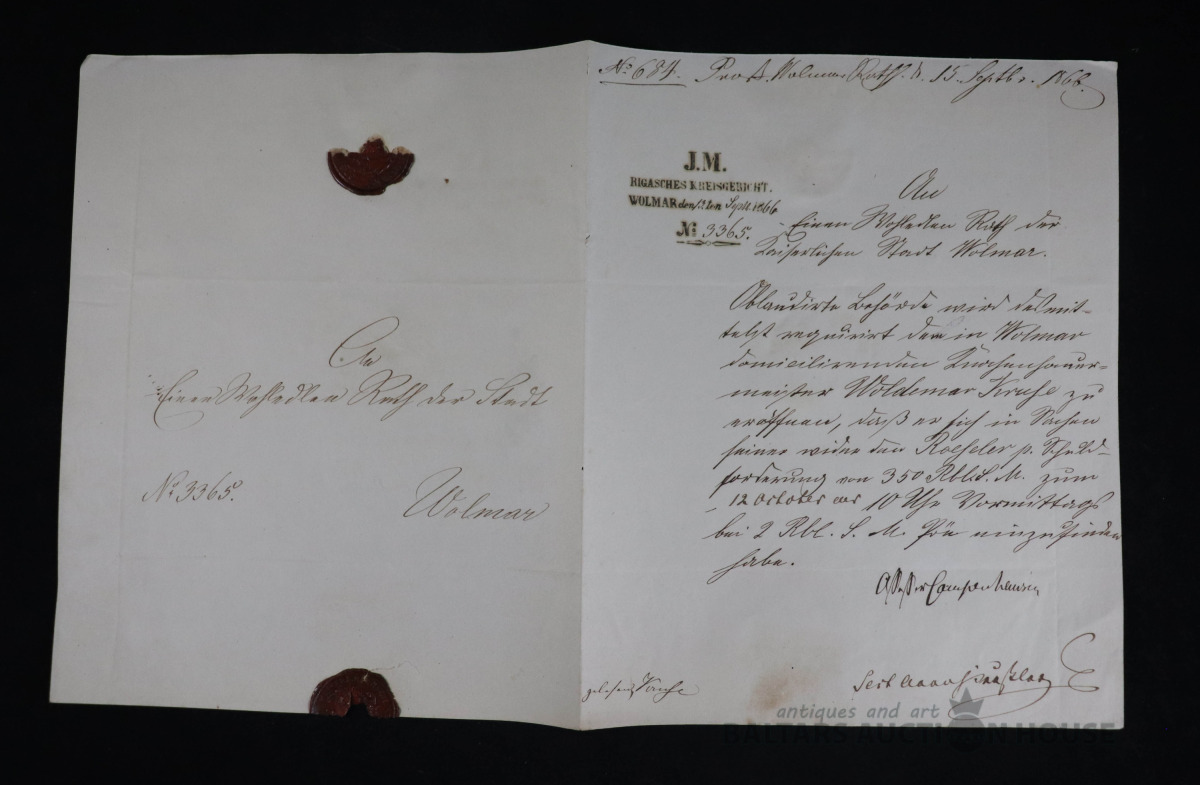 An
Einen Wohledlen Rath der Stadt
No 3365.
Wolmar
No 684. Prod. Wolmar Rath. d. 15 Septbr. 1866.
J.M.
RIGASCHES KREISGERICHT.
WOLMAR den Sept. 1866
No 3365.
An
Einen Wohledlen Rath der
Kaiserlichen Stadt Wolmar.
Oblaudirte Behörde wird desmit-
telst requirirt dem in Wolmar
domicilirenden Knochenhauer-
meister Woldemar Kruhse zu
eröffnen, daß er sich in Sachen
seiner wider den Roeseler p. Schuld-
forderung von 350 Rbl. S. M. zum
12 October 10 Uhr Vormittags
bei 2 Rbl. S. M. Pön einzufinden
habe.
Assessor Campenhausen
gelesen
antiques and art
BALTARS AUCTION HOUSE